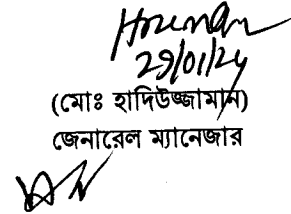 29/01/24
(মোঃ হাদিউজ্জামান)
জেনারেল ম্যানেজার